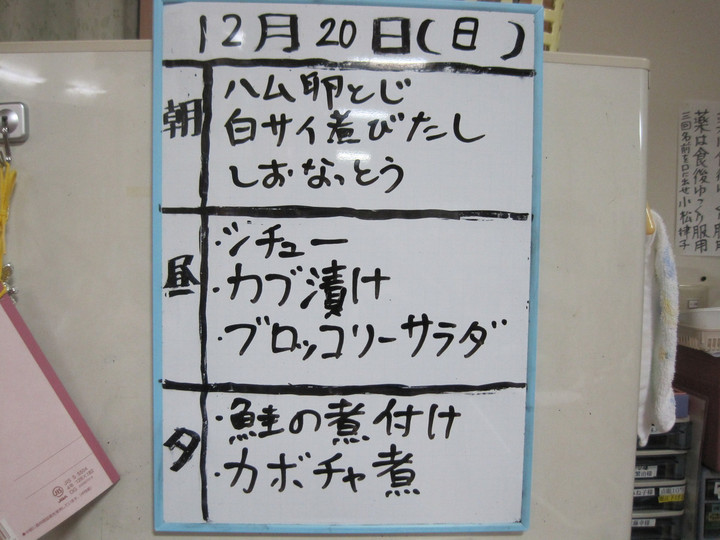 12月20日(日)
朝
ハム卵とじ
白サイ煮びたし
しおなっとう
昼
・シチュー
・カブ漬け
・ブロッコリーサラダ
夕
・鮭の煮付け
・カボチャ煮
薬は食後ゆっくり服用
三回名前を口に出せ小松律子